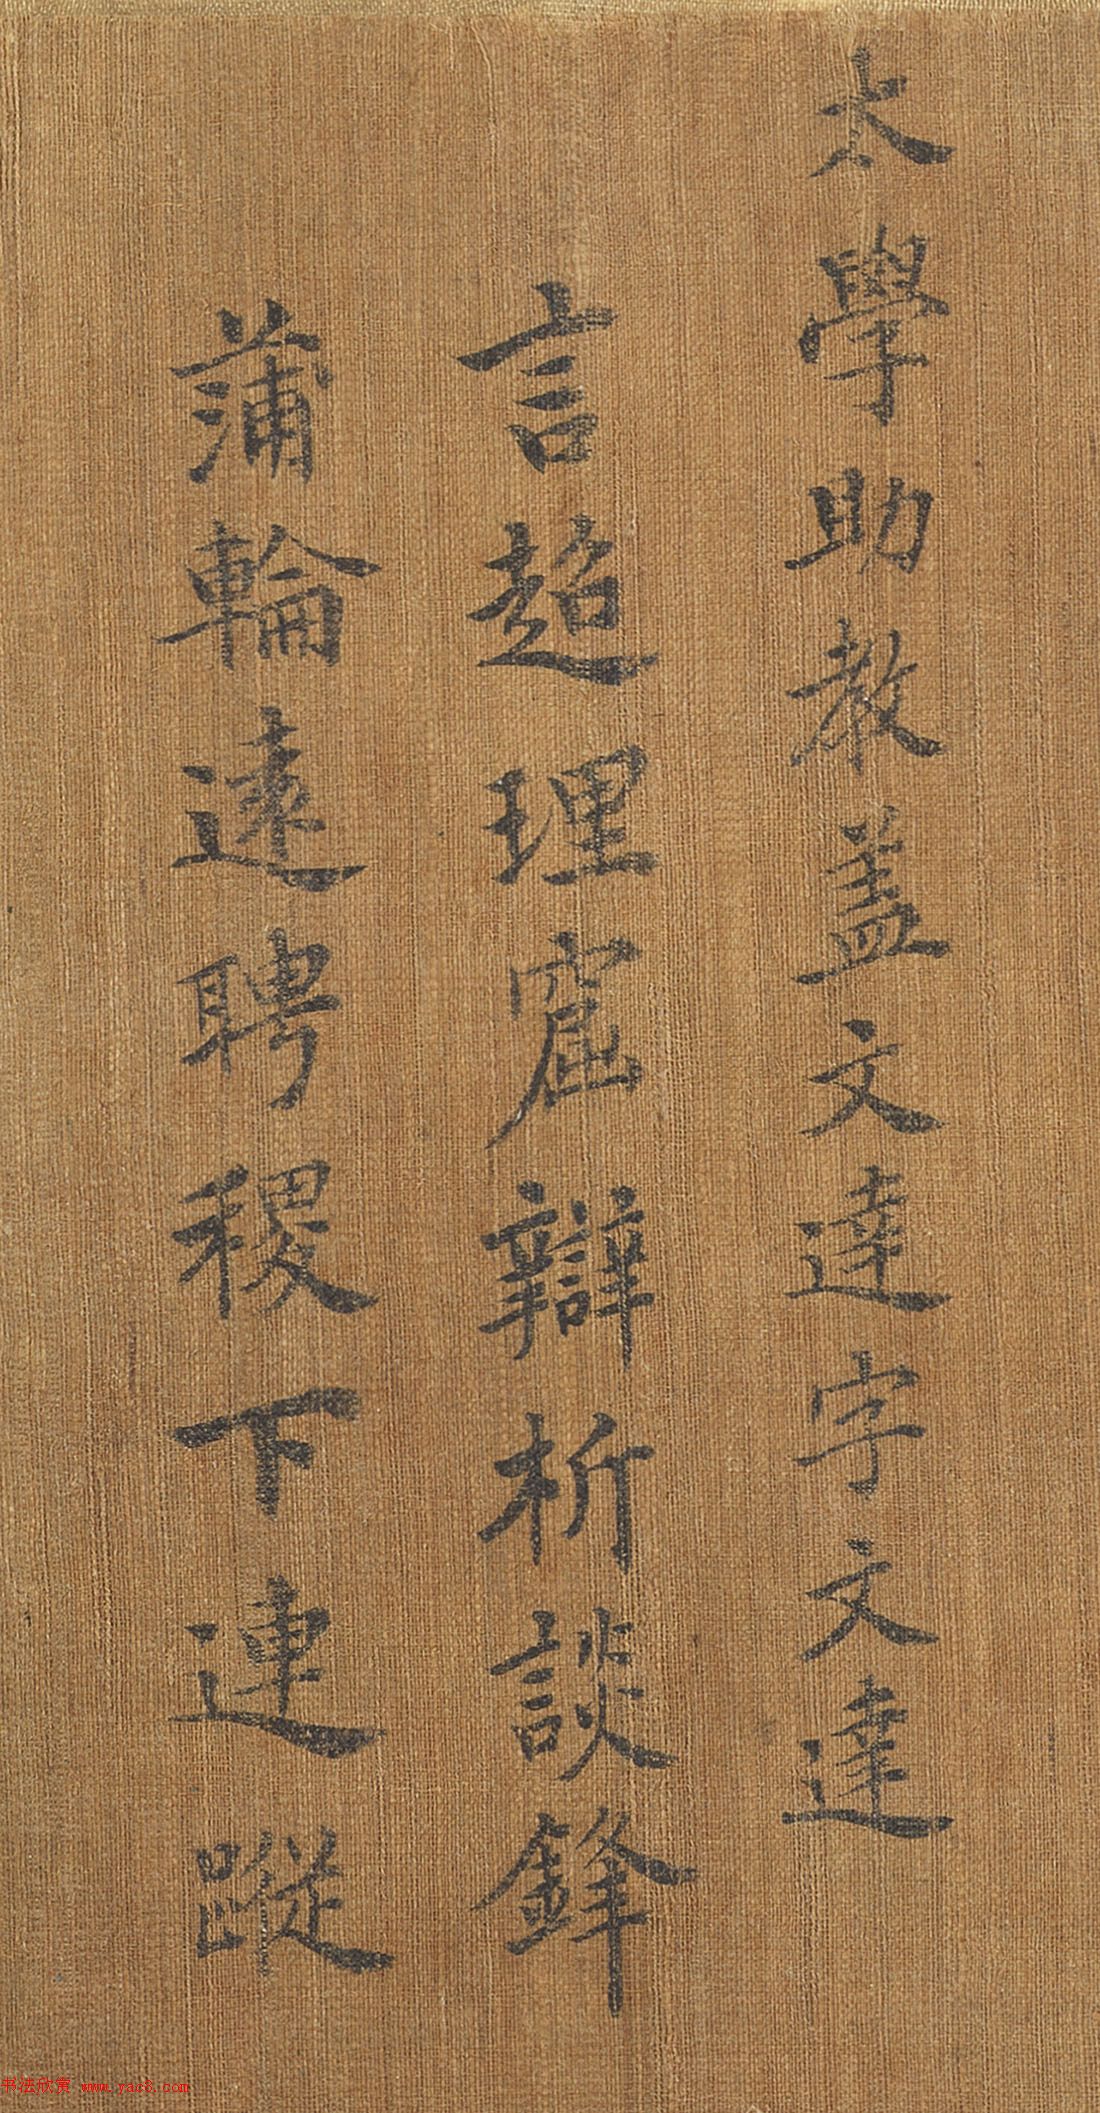 太學助教蓋文達字文達
言超理窟辯析談鋒
蒲輪遠聘稷下連蹤
书法欣赏 www.yac8.com